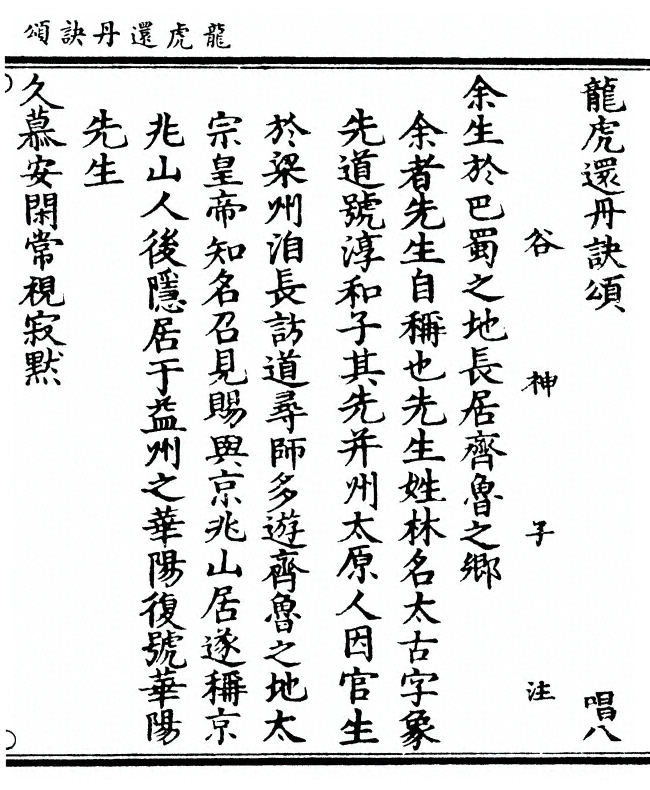 龍虎還丹訣頌
龍虎還丹訣頌 唱八
谷神子注
余生於巴蜀之地長居齊魯之鄉
余者先生自稱也先生姓林名太古字象
先道號淳和子其先并州太原人因官生
於梁州洎長訪道尋師多遊齊魯之地太
宗皇帝知名召見賜與京兆山居遂稱京
兆山人後隱居于益州之華陽復號華陽
先生
久慕安閑常視寂默